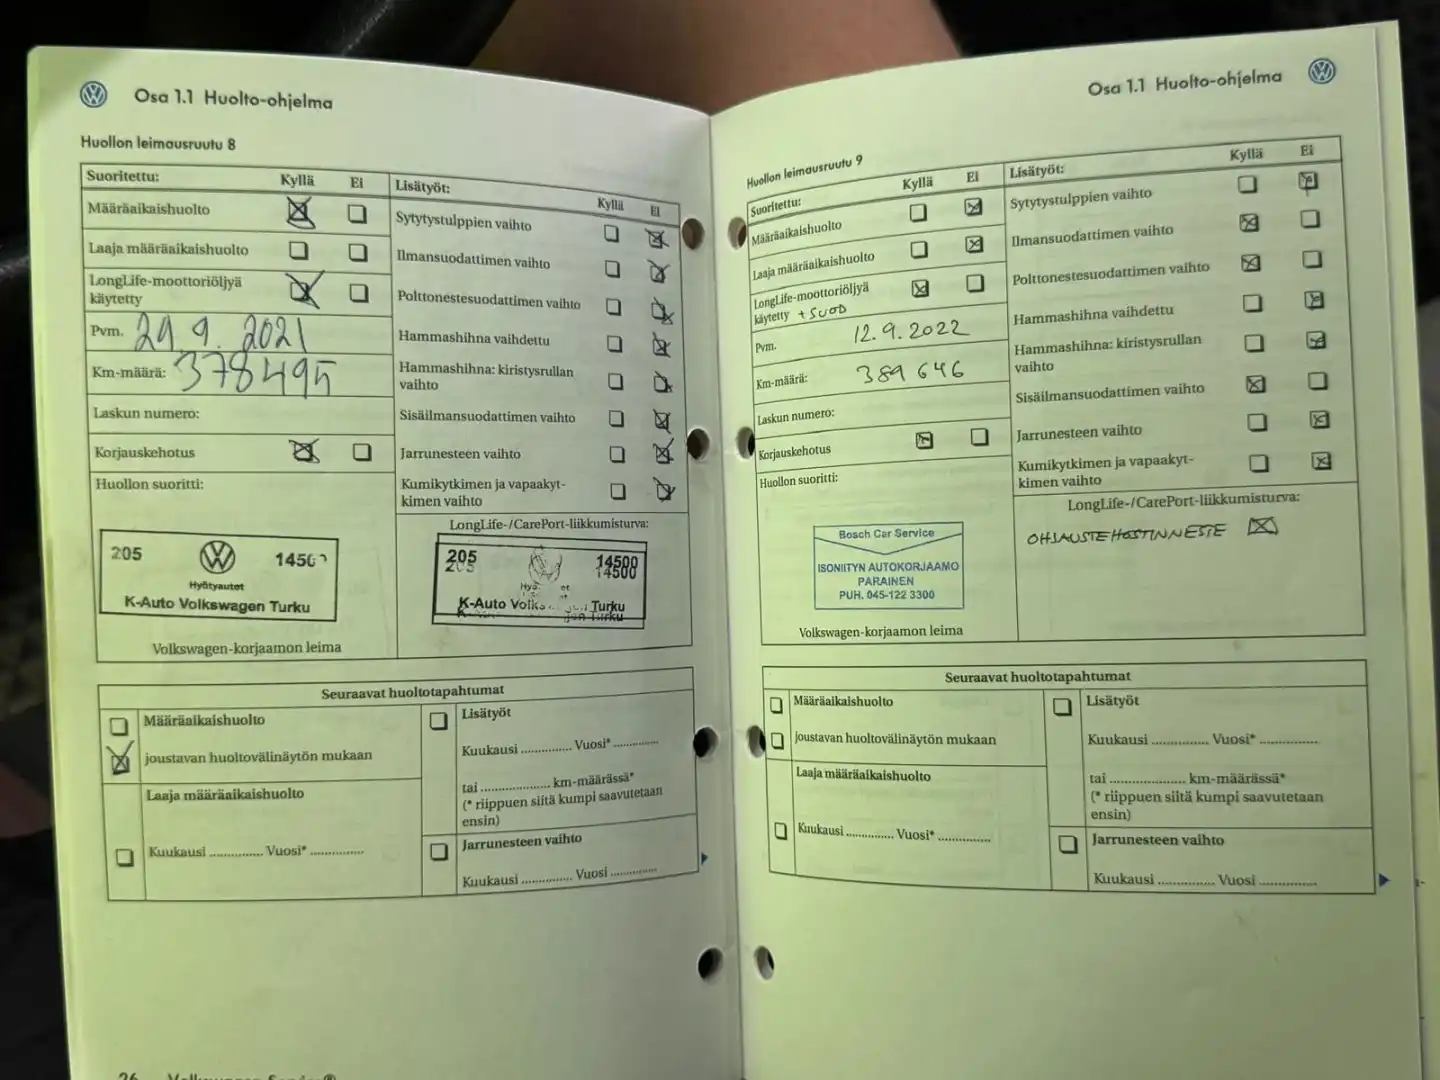 Osa 1.1 Huolto-ohjelma
Huollon leimausruutu 8
Suoritettu: Kyllä Ei
Määräaikaishuolto
Laaja määräaikaishuolto
LongLife-moottoriöljyä
käytetty
Pvm. 29.9.2021
Km-määrä: 378495
Laskun numero:
Korjauskehotus
Huollon suoritti:
205 1450
Hyötyautot
K-Auto Volkswagen Turku
Volkswagen-korjaamon leima
Lisätyöt: Kyllä Ei
Sytytystulppien vaihto
Ilmansuodattimen vaihto
Polttonestesuodattimen vaihto
Hammashihna vaihdettu
Hammashihna: kiristysrullan
vaihto
Sisäilmansuodattimen vaihto
Jarrunesteen vaihto
Kumikytkimen ja vapaakyt-
kimen vaihto
LongLife-/CarePort-liikkumisturva:
205 14500
205 14500
K-Auto Turku
Turku
Seuraavat huoltotapahtumat
Määräaikaishuolto
joustavan huoltovälinäytön mukaan
Laaja määräaikaishuolto
Kuukausi .............. Vuosi* ..............
Lisätyöt
Kuukausi .............. Vuosi* ............
tai .................. km-määrässä*
(* riippuen siitä kumpi saavutetaan
ensin)
Jarrunesteen vaihto
Kuukausi .............. Vuosi ............
26 Volkswagen Service®
Osa 1.1 Huolto-ohjelma
Huollon leimausruutu 9
Suoritettu: Kyllä Ei
Määräaikaishuolto
Laaja määräaikaishuolto
LongLife-moottoriöljyä
käytetty + SUOD
Pvm. 12.9.2022
Km-määrä: 389 646
Laskun numero:
Korjauskehotus
Huollon suoritti:
Bosch Car Service
ISONIITYN AUTOKORJAAMO
PARAINEN
PUH. 045-122 3300
Volkswagen-korjaamon leima
Lisätyöt: Kyllä Ei
Sytytystulppien vaihto
Ilmansuodattimen vaihto
Polttonestesuodattimen vaihto
Hammashihna vaihdettu
Hammashihna: kiristysrullan
vaihto
Sisäilmansuodattimen vaihto
Jarrunesteen vaihto
Kumikytkimen ja vapaakyt-
kimen vaihto
LongLife-/CarePort-liikkumisturva:
OHJAUSTEHOSTINNESTE
Seuraavat huoltotapahtumat
Määräaikaishuolto
joustavan huoltovälinäytön mukaan
Laaja määräaikaishuolto
Kuukausi .............. Vuosi* ..............
Lisätyöt
Kuukausi .............. Vuosi* ..............
tai .................. km-määrässä*
(* riippuen siitä kumpi saavutetaan
ensin)
Jarrunesteen vaihto
Kuukausi .............. Vuosi ..............